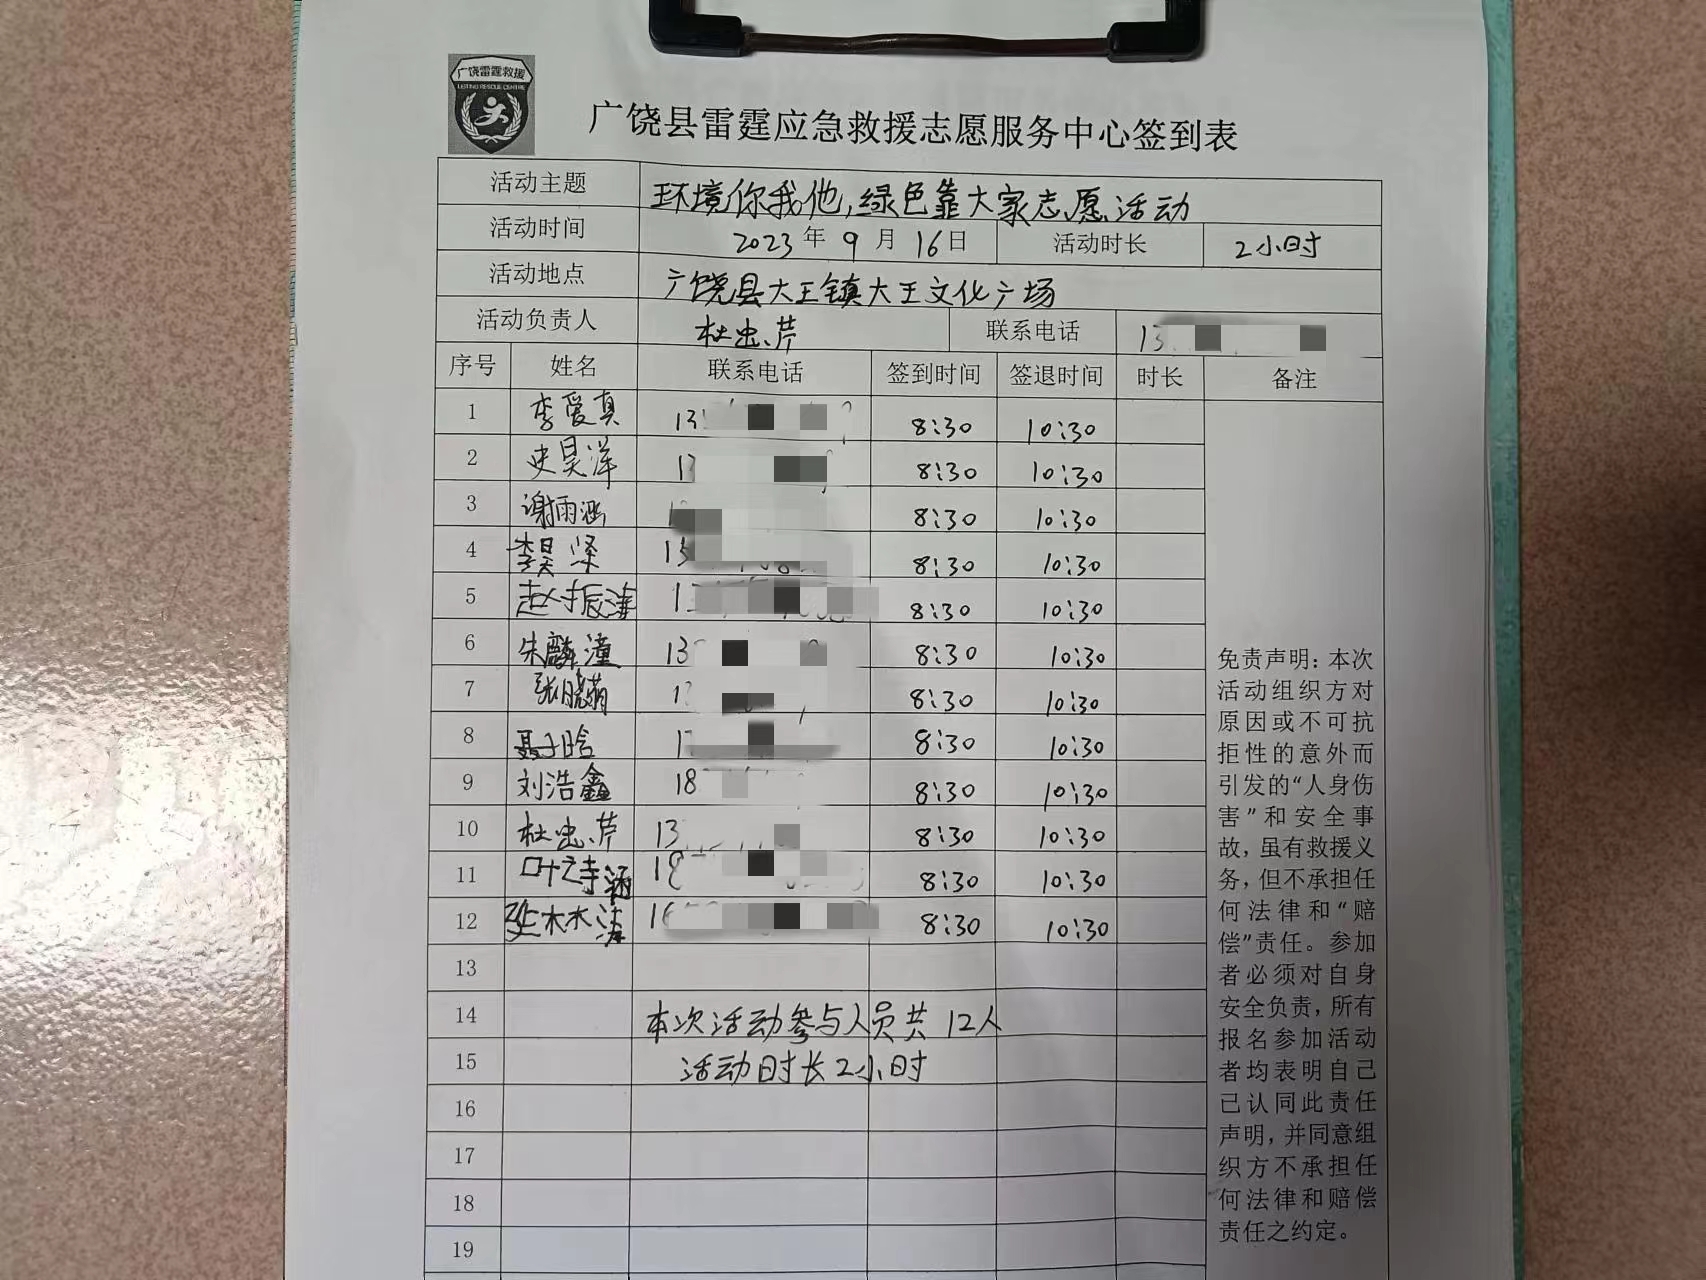 广饶雷霆救援
LEITING RESCUE CENTRE
广饶县雷霆应急救援志愿服务中心签到表
活动主题 环境你我他,绿色靠大家志愿活动
活动时间 2023年9月16日 活动时长 2小时
活动地点 广饶县大王镇大王文化广场
活动负责人 杜忠芹 联系电话 13
序号 姓名 联系电话 签到时间 签退时间 时长 备注
1 李爱真 13 8:30 10:30
2 史昊洋 13 8:30 10:30
3 谢雨涵 8:30 10:30
4 李昊泽 13 8:30 10:30
5 赵振 13 8:30 10:30
6 朱麟潼 13 8:30 10:30
7 张晓萌 8:30 10:30
8 聂子晗 8:30 10:30
9 刘浩鑫 18 8:30 10:30
10 杜忠芹 13 8:30 10:30
11 叶涵 18 8:30 10:30
12 8:30 10:30
13
14 本次活动参与人员共12人
15 活动时长2小时
16
17
18
19
免责声明：本次
活动组织方对
原因或不可抗
拒性的意外而
引发的“人身伤
害”和安全事
故，虽有救援义
务，但不承担任
何法律和“赔
偿”责任。参加
者必须对自身
安全负责，所有
报名参加活动
者均表明自己
已认同此责任
声明，并同意组
织方不承担任
何法律和赔偿
责任之约定。